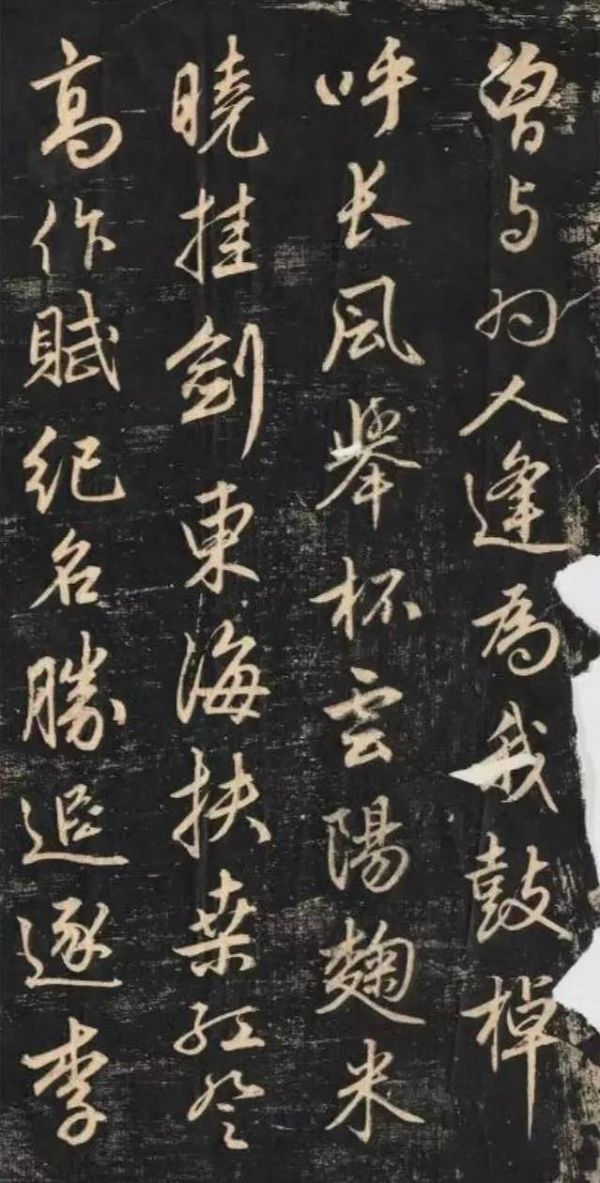 曾与人逢為我鼓棹
呼长風舉杯雲陽麹米
曉挂劍東海扶桒紅登
高作賦紀名勝追逐李